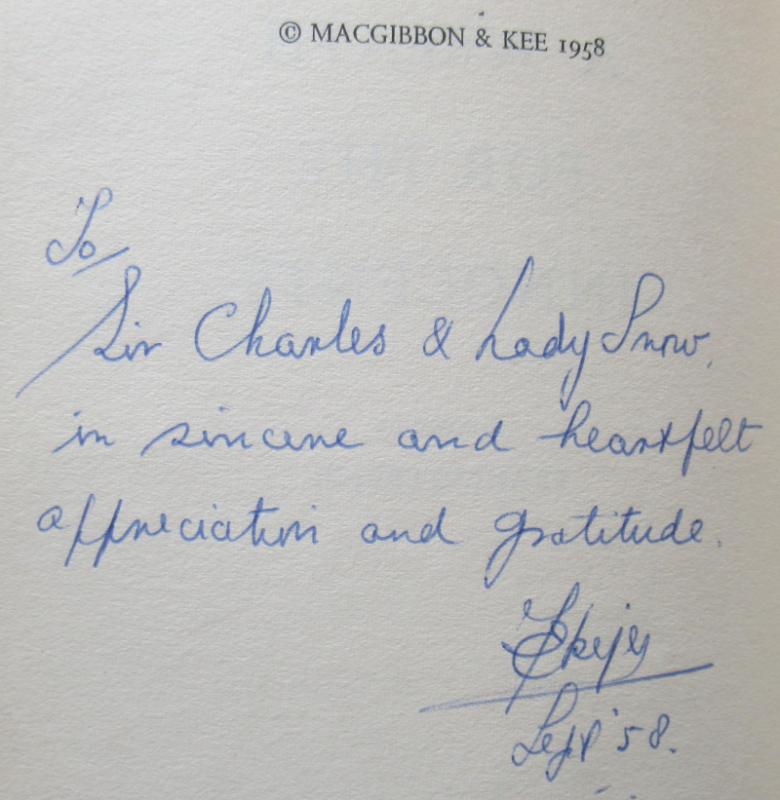 © MACGIBBON & KEE 1958
To
Sir Charles & Lady Snow,
in sincere and heartfelt
appreciation and gratitude.
Sept '58.